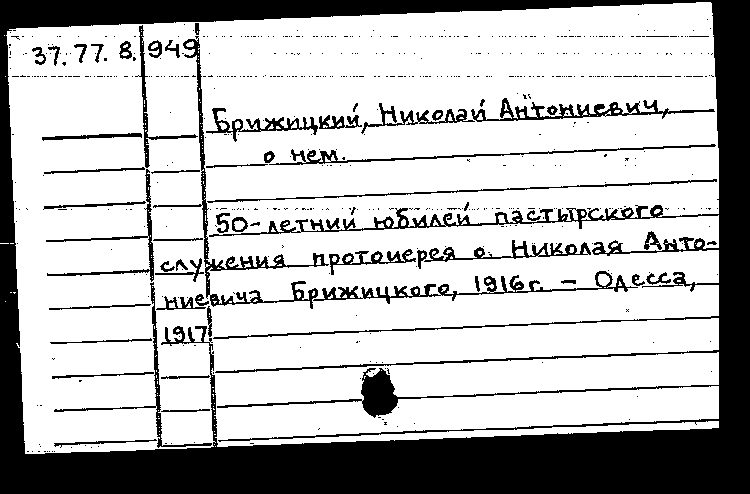 37.77.8.949
Брижицкий, Николай Антониевич,
о нем.
50-летний юбилей пастырского
служения протоиерея о. Николая Анто-
ниевича Брижицкого, 1916г. – Одесса,
1917